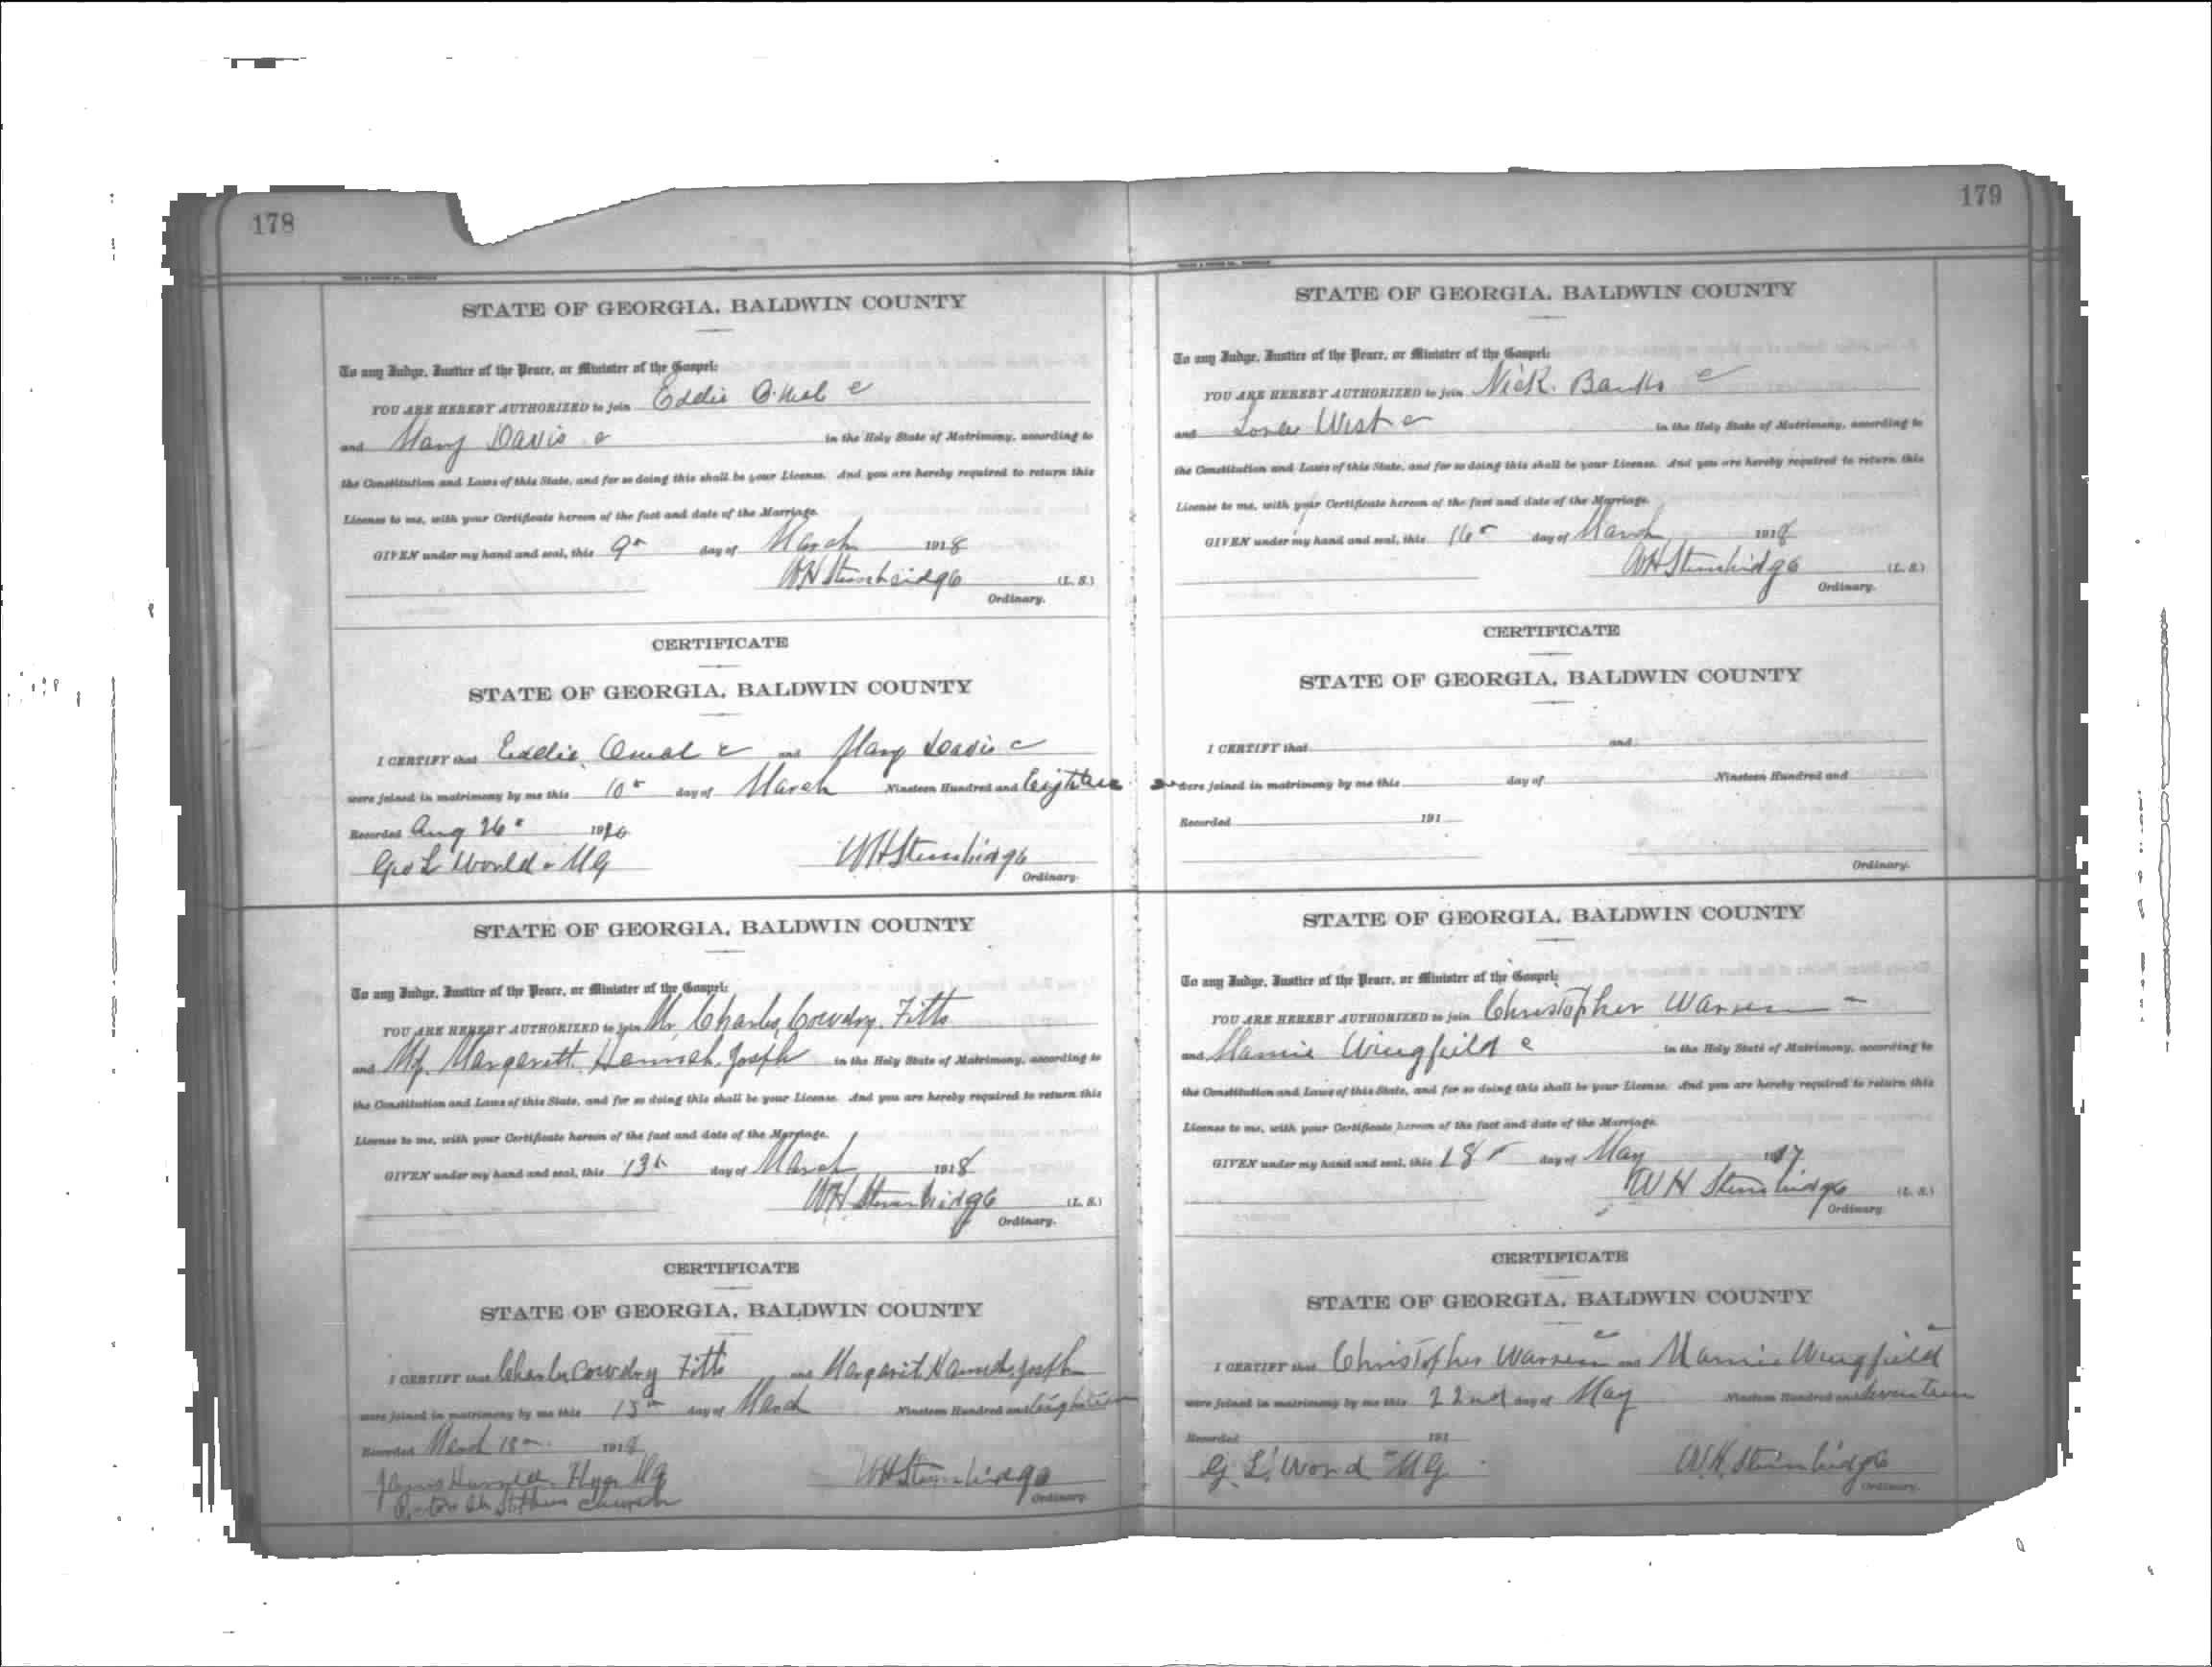 178
STATE OF GEORGIA, BALDWIN COUNTY
To any Judge, Justice of the Peace, or Minister of the Gospel:
YOU ARE HEREBY AUTHORIZED to join Eddie O.Neal c
and Mary Davis c in the Holy State of Matrimony, according to
the Constitution and Laws of this State, and for so doing this shall be your License. And you are hereby required to return this
License to me, with your Certificate hereon of the fact and date of the Marriage.
GIVEN under my hand and seal, this 9th day of March 1918
WH Stembridge (L. S.)
Ordinary.
CERTIFICATE
STATE OF GEORGIA, BALDWIN COUNTY
I CERTIFY that Eddie Oneal c and Mary Davis c
were joined in matrimony by me this 10th day of March Nineteen Hundred and Eighteen
Recorded Aug 26th 19
Geo L MG WH Stembridge
Ordinary.
STATE OF GEORGIA, BALDWIN COUNTY
To any Judge, Justice of the Peace, or Minister of the Gospel:
YOU ARE HEREBY AUTHORIZED to join Mr Charles Cowdry Fitts
and Margarett Hannah Joseph in the Holy State of Matrimony, according to
the Constitution and Laws of this State, and for so doing this shall be your License. And you are hereby required to return this
License to me, with your Certificate hereon of the fact and date of the Marriage.
GIVEN under my hand and seal, this 13th day of March 1918
WH Stembridge (L. S.)
Ordinary.
CERTIFICATE
STATE OF GEORGIA, BALDWIN COUNTY
I CERTIFY that Charles Cowdry Fitts and Margaret Hannah Joseph
were joined in matrimony by me this day of March Nineteen Hundred and Eighteen
Recorded March 18th 1918
James MG WH Stembridge
St Stephens Church Ordinary.
179
STATE OF GEORGIA, BALDWIN COUNTY
To any Judge, Justice of the Peace, or Minister of the Gospel:
YOU ARE HEREBY AUTHORIZED to join Nick Banks c
and West c in the Holy State of Matrimony, according to
the Constitution and Laws of this State, and for so doing this shall be your License. And you are hereby required to return this
License to me, with your Certificate hereon of the fact and date of the Marriage.
GIVEN under my hand and seal, this 16th day of March 1918
WH Stembridge (L. S.)
Ordinary.
CERTIFICATE
STATE OF GEORGIA, BALDWIN COUNTY
I CERTIFY that and
were joined in matrimony by me this day of Nineteen Hundred and
Recorded 191
Ordinary.
STATE OF GEORGIA, BALDWIN COUNTY
To any Judge, Justice of the Peace, or Minister of the Gospel:
YOU ARE HEREBY AUTHORIZED to join Christopher Warren c
and Mamie Wingfield c in the Holy State of Matrimony, according to
the Constitution and Laws of this State, and for so doing this shall be your License. And you are hereby required to return this
License to me, with your Certificate hereon of the fact and date of the Marriage.
GIVEN under my hand and seal, this 18th day of May 1917
WH Stembridge (L. S.)
Ordinary.
CERTIFICATE
STATE OF GEORGIA, BALDWIN COUNTY
I CERTIFY that Christopher Warren c and Mamie Wingfield c
were joined in matrimony by me this 22nd day of May Nineteen Hundred and Seventeen
Recorded 191
G. L. Word MG W.H. Stembridge
Ordinary.